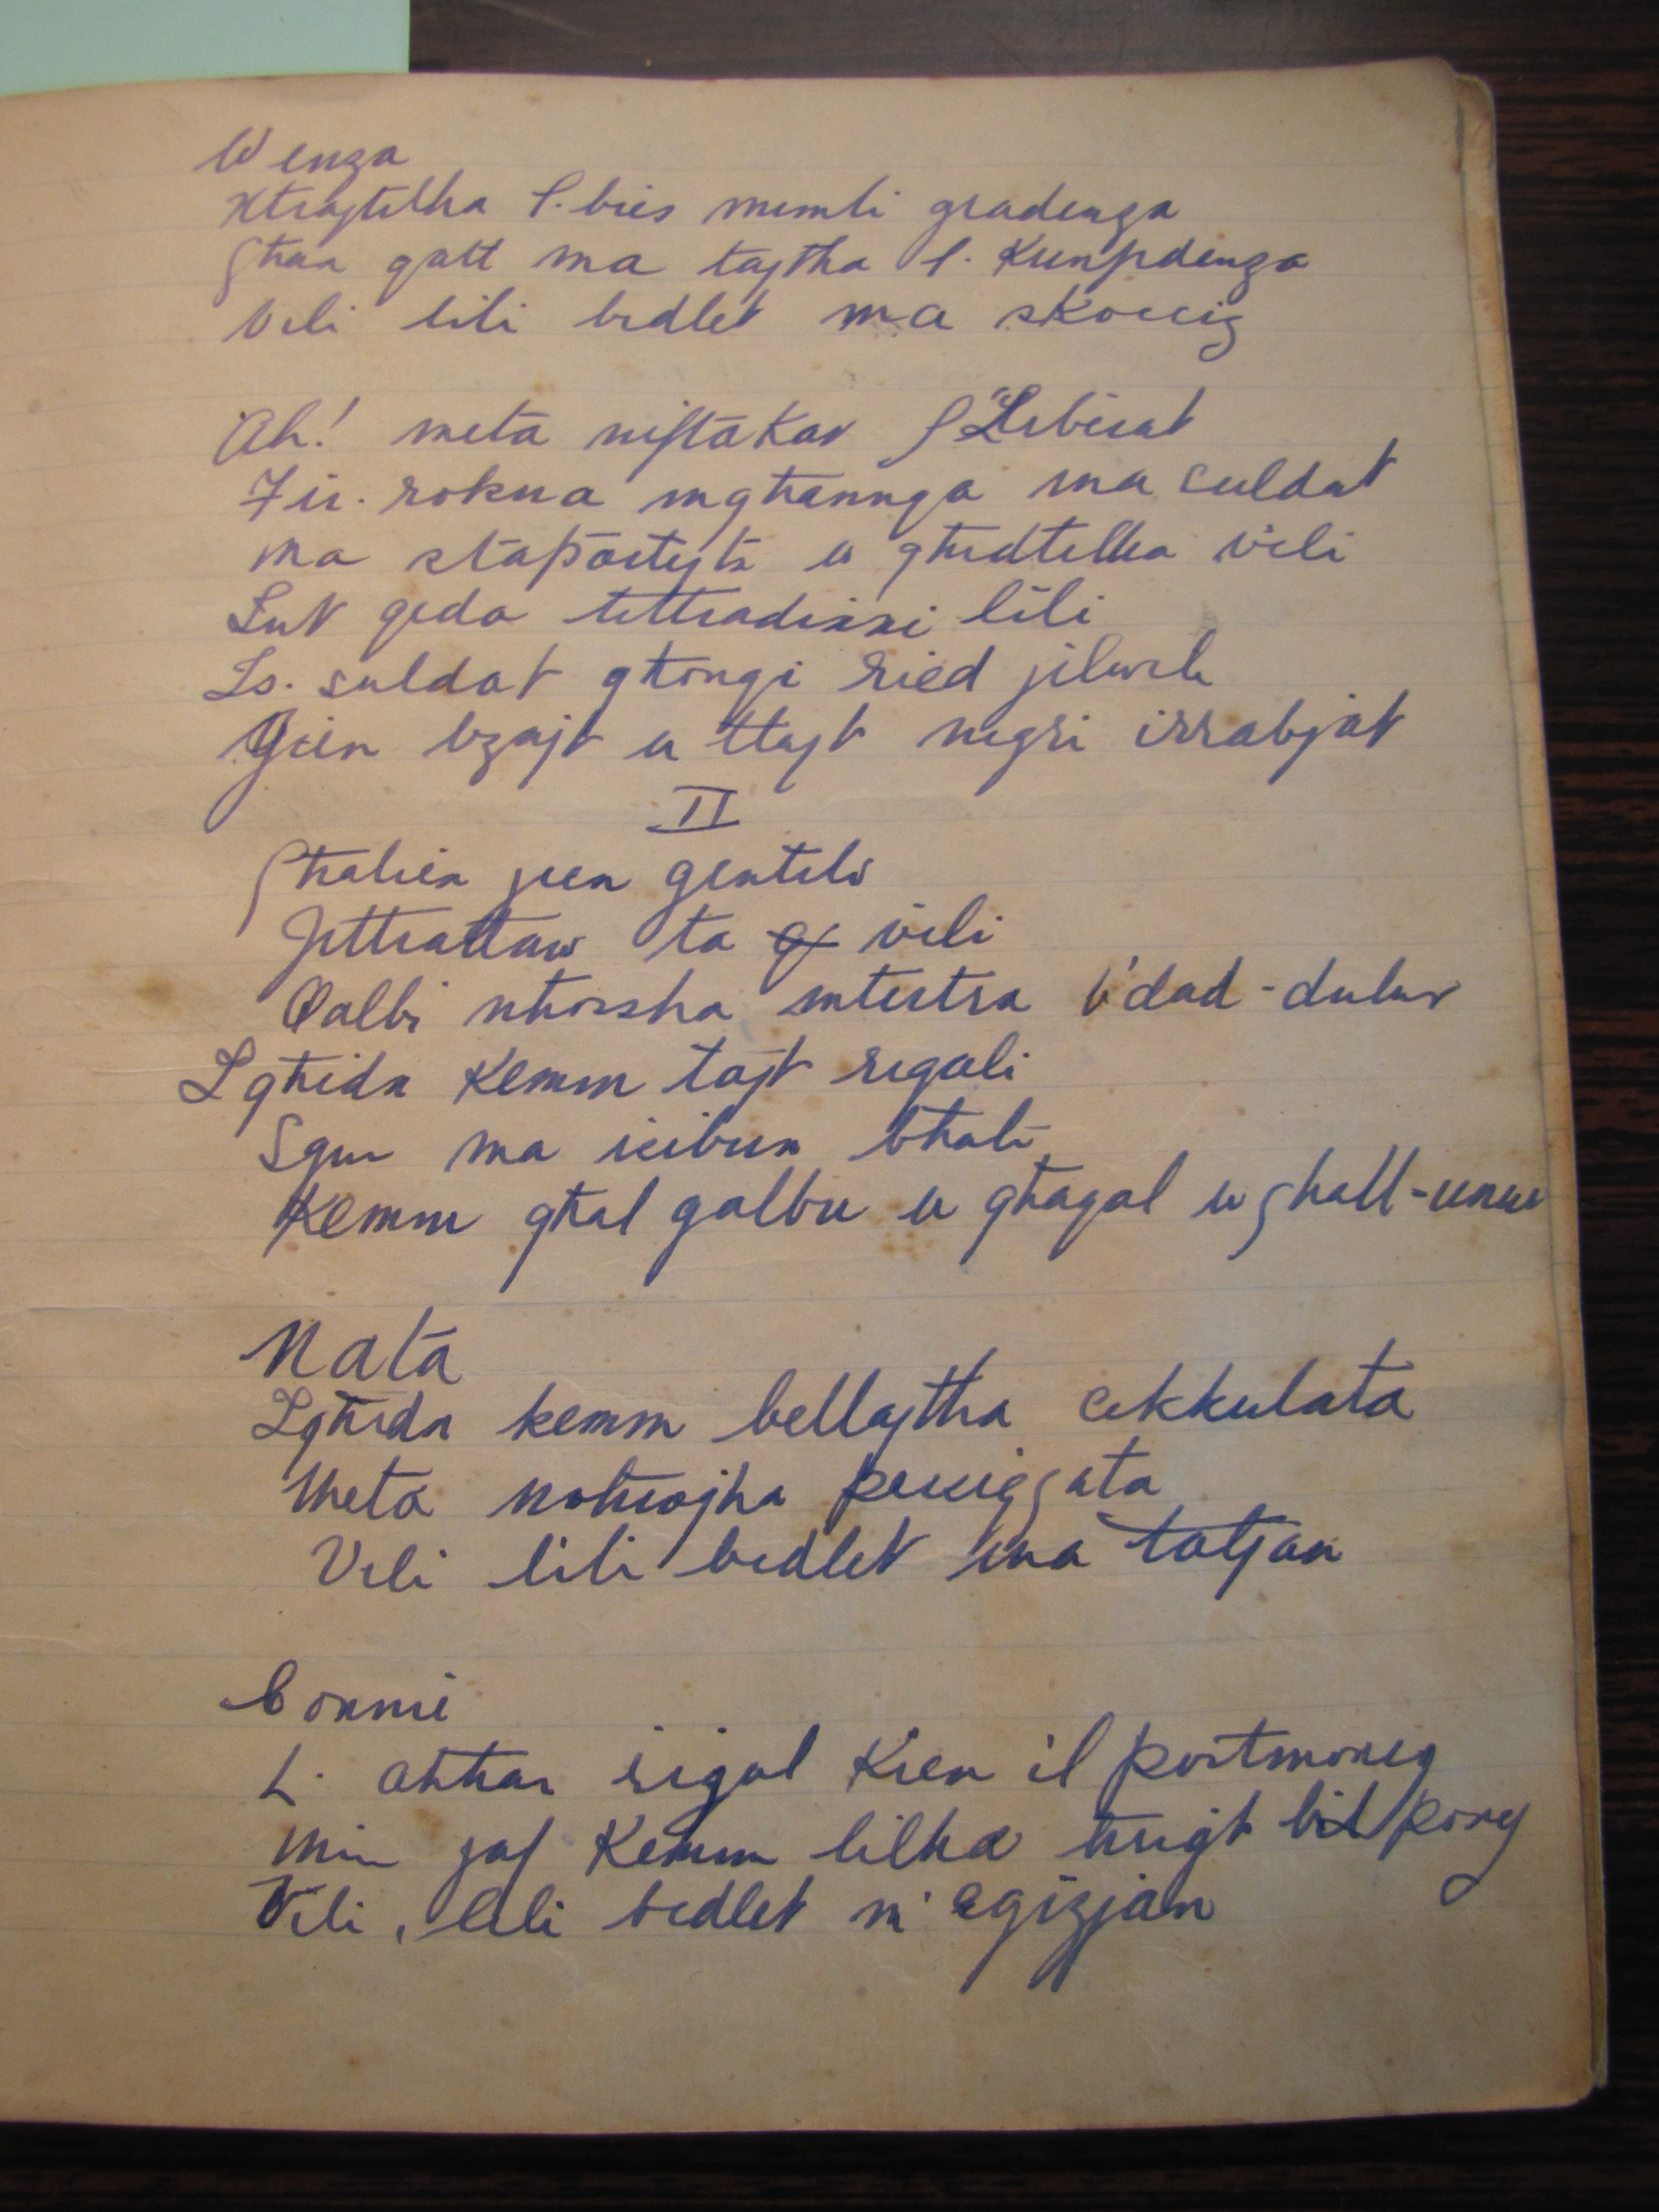 Wenza
Xtrajtelha l. bies mimli gradenza
Għax qatt ma tajtha l. Kunfidenza
Veli lili bidlet ma skoċċiż
Ah! meta niftakar
Fir. rokna mgħannqa ma suldat
ma u għedtelha veli
Lut qeda tittradixxi lili
Is. suldat għonqi ried jilwili
Ġien bżajt u tlajt niġri
II
Għaliex jien ġentili
Jittrattaw ta veli
Qalbi nħossha mtertra b'dad-dulur
Lgħida Kemm tajt rigali
Sgur ma ssibux bħali
Kemm għal qalbu u għaqal u għall-unur
Nata
Lgħida kemm bellajtha ċikkulata
Meta noħroġha passiġġata
Veli lili bidlet ma taljan
Connie
L. aħħar rigal Kien il portmoney
Min jaf Kemm lilha ħriġt bil pony
Veli, lili bidlet m' eġizjan